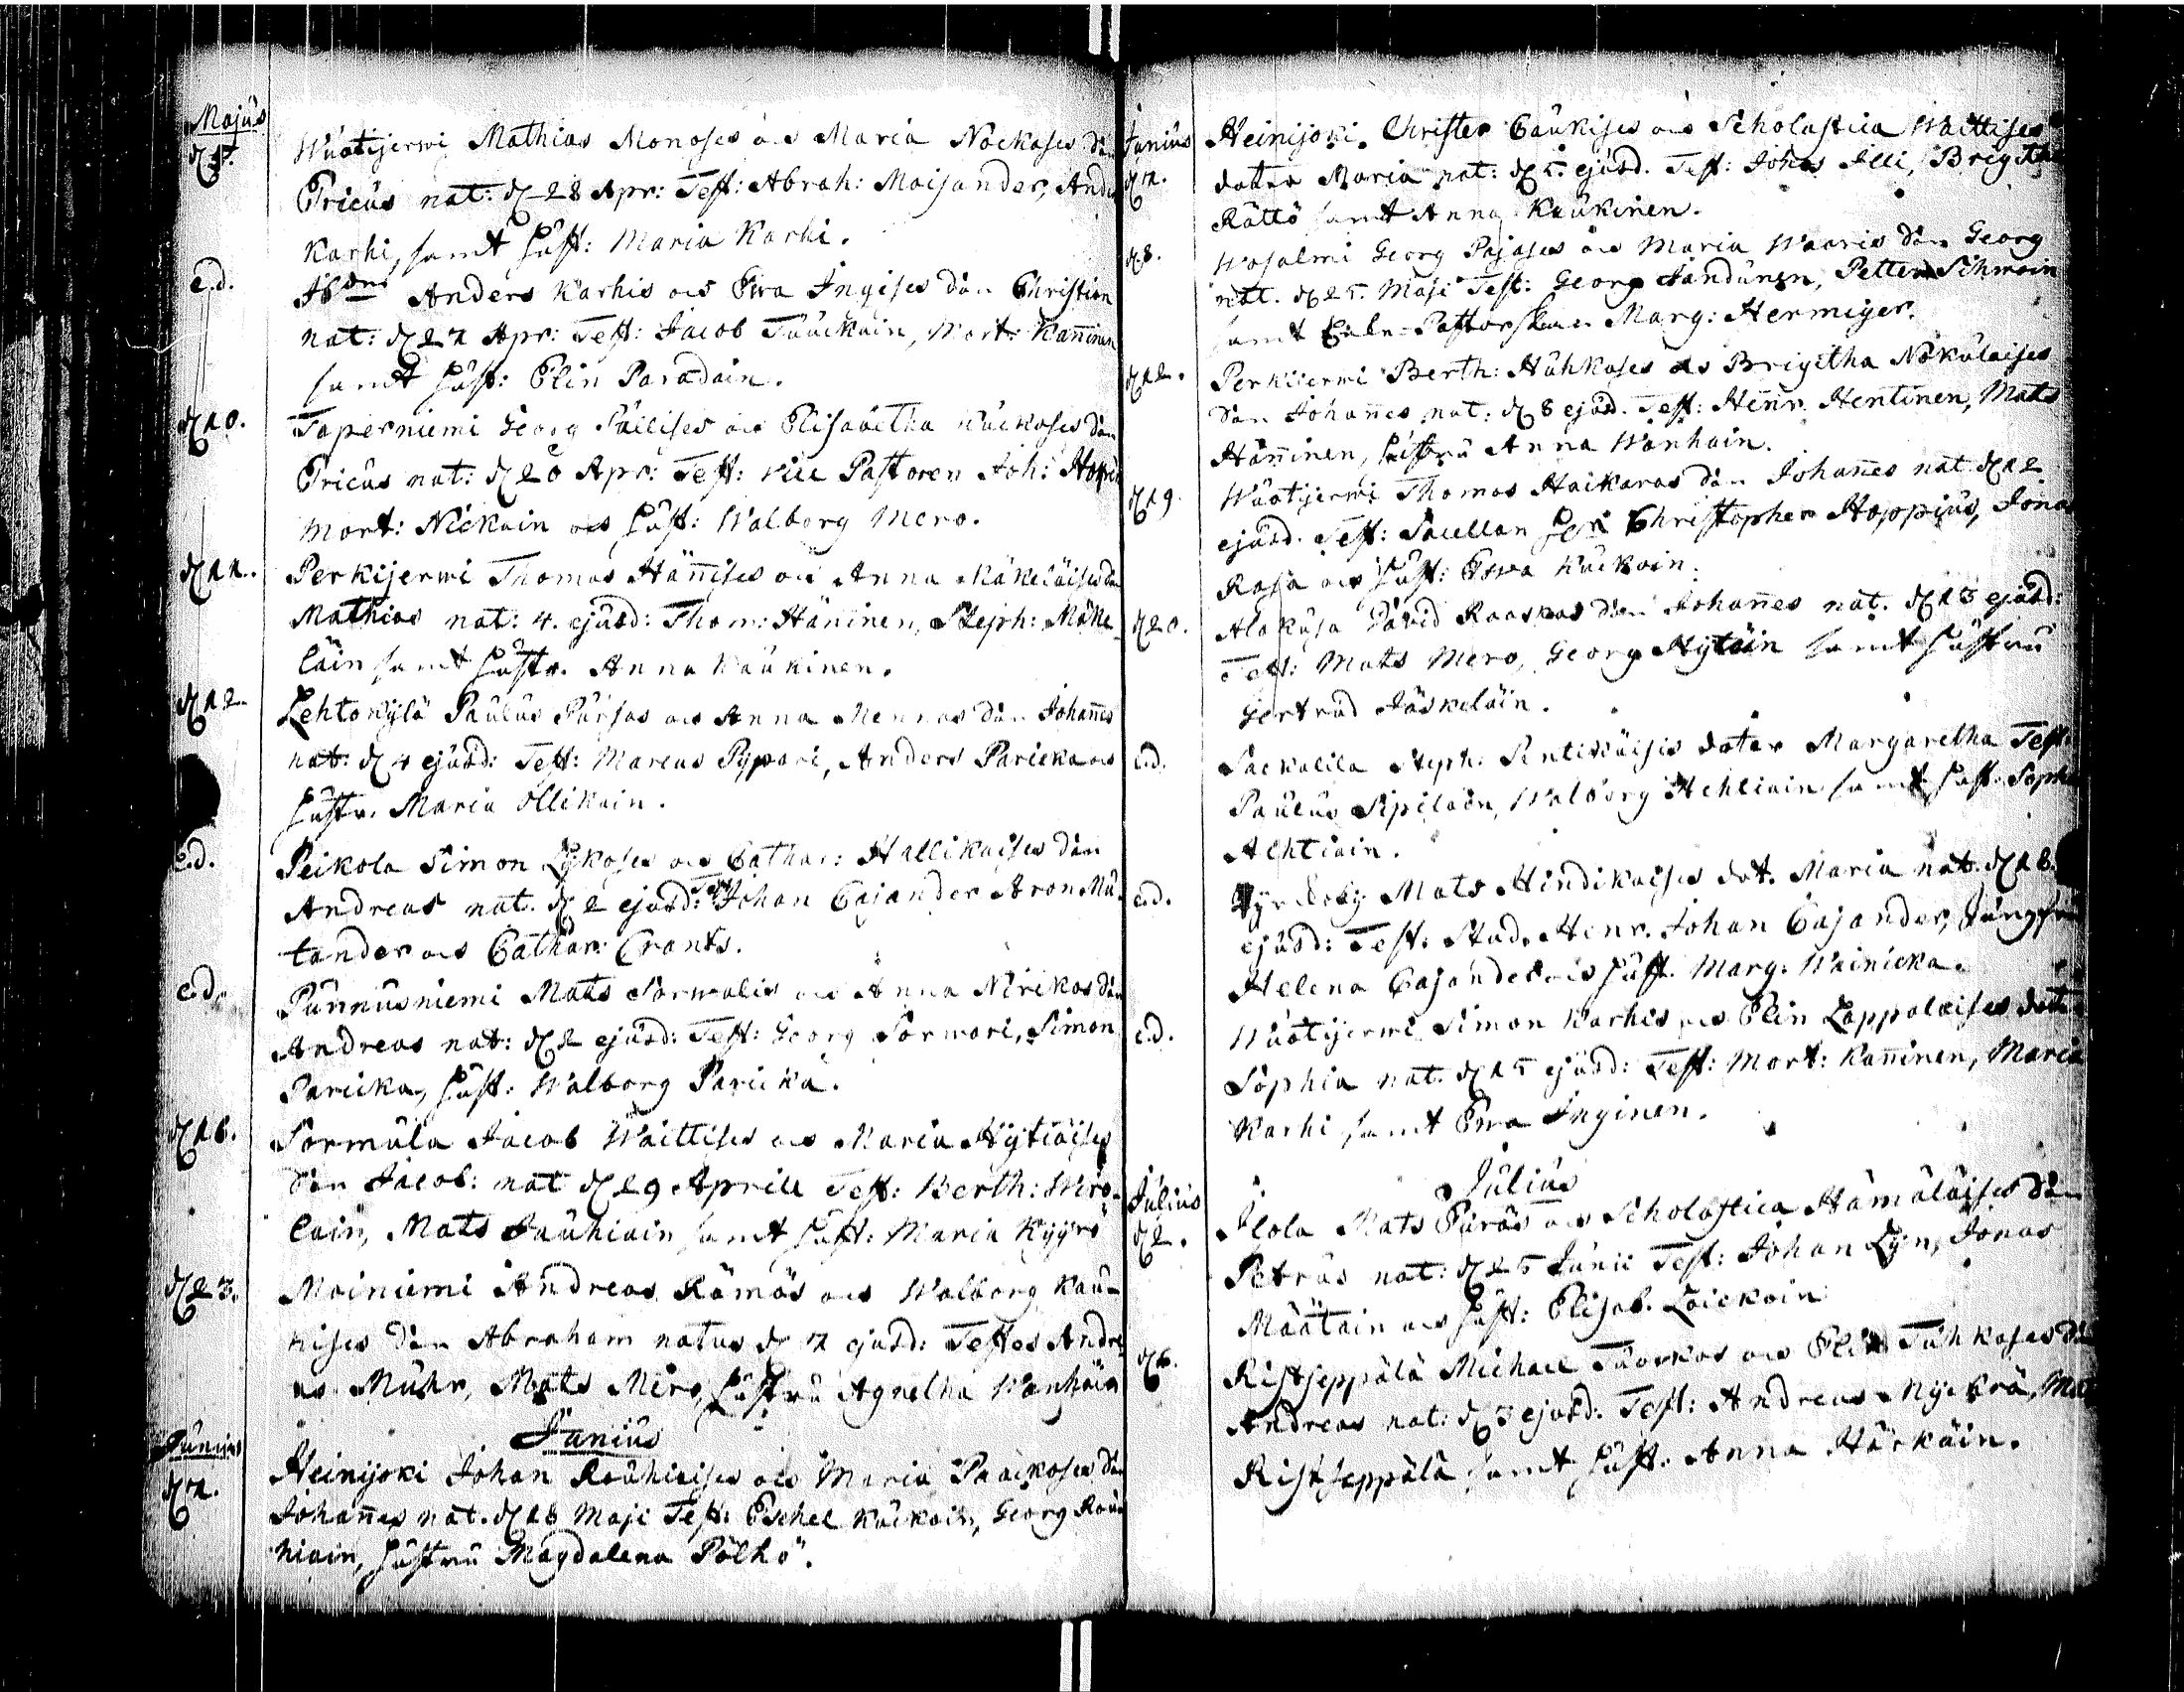 Majus
d. 5. Wuotijerwi Mathias Monoses ocs Maria Nockoses dän
Ericus nat: d. 28 Apr: Test: Abrah: Moisander, And
Karhi, samt Hust: Maria Karhi.
e.d. Ibdm Anders Karhis ocs Ewa Ingises dän Christian
nat: d. 27 Apr: Test: Jacob Tuuckain, Mort: Kaninen
samt Hust: Elin Paradain.
d. 10. Taperniemi Georg Pällises ocs Elisabetha Kuckoses dän
Ericus nat: d. 20 Apr: Test: vice Pastoren Joh: Hoppi
Mort: Nickain ocs Hust: Walborg Mero.
d. 11. Perkijerwi Thomas Hännises ocs Anna Mäkeläises dän
Mathias nat: 4. ejusd: Thom: Häninen, Steph: Mäke
läin samt Hustr. Anna Kaukinen.
d. 12. Lehtokylä Paulus Purjas ocs Anna Mennas dän Johanes
nat: d. 4 ejusd: Test: Marcus Pypari, Anders Paricka ocs
Hustr. Maria Ollikain.
e.d. Peikola Simon Lykoses ocs Cathar: Hallikaises dän
Andreas nat. d. 2 ejusd: Test Johan Cajander Aron Mu
tander ocs Cathar: Crants.
e.d. Punnusniemi Mats Sormalis ocs Anna Nirikas dän
Andreas nat: d. 2 ejusd: Test: Georg Sormari, Simon
Paricka, Hust: Walborg Paricka.
d. 16. Sormula Jacob Waittises ocs Maria Hytiäises
dän Jacob: nat d. 29 Aprill Test: Berth: Wiro-
lain, Mats Jauhiain samt Hust: Maria Kyyrö
d. 23. Moiniemi Andreas Rämäs ocs Walborg Kau-
kises dän Abraham natus d. 17 ejusd: Testes Andre
as Muhr, Mats Mero, Hustru Agnetha Wanhain
Junius
Junius
d. 1. Heinijoki Johan Rouhiaises ocs Maria Paackoses dän
Johannes nat. d. 18 Maji Test: Eschel Kuckain, Georg Rou
hiain, Hustru Magdalena Pölhö.
Junius Heinijoki. Christer Caukises ocs Scholastica Waittises
d. 7. dotter Maria nat: d. 5. ejusd. Test: Johas Illi, Brigitha
Rättö samt Anna Kaukinen.
d. 8. Wosalmi Georg Pajases ocs Maria Waaris dän Georg
nat. d. 25. Maji Test: Georg Jandunen, Petter Schwain
samt Pastorskan Marg: Hermiger.
d. 12. Perkijerwi Berth: Huhkases ocs Brigitha Nikulaises
dän Johannes nat: d. 8 ejusd. Test: Henr. Hentinen, Mats
Häninen, Hustru Anna Wanhain.
d. 19. Wuotijerwi Thomas Haikaras dän Johannes nat. d. 12
ejusd. Test: Sacellan Christopher Hoppius, Jona
Rasa ocs Hust: Ewa Kuckain.
d. 20. Alakusa David Raaskas dän Johannes nat. d. 13 ejusd:
Test: Mats Mero, Georg Hytiäin samt Hustru
Gertrud Jäskeläin.
e.d. Sackalila Steph: Pentikäisis dotter Margaretha Test:
Paulus Sipiläin, Walborg Hehliain samt Hust. Soph
Ahtiain.
e.d. Mats Hindikaises dot. Maria nat. d. 18.
ejusd: Test: Stud. Henr. Johan Cajander, Jungfru
Helena Cajander ocs Hust. Marg: Wainicka.
e.d. Wuotijerwi Simon Karhis ocs Elin Lappalaises dott
Sophia nat. d. 15 ejusd: Test: Mort: Kaninen, Maria
Karhi samt Ewa Inginen.
Julius
Julius
d. 2. Ilola Mats Puräs ocs Scholastica Hämäläises dän
Petrus nat: d. 25 Junii Test: Johan Lyn, Jonas
Määtain ocs Hust: Elisab. Loickain
d. 6. Ristseppälä Michael Tuorkas ocs Elin Tuhkases dän
Andreas nat: d. 3 ejusd. Test: Andreas Myckrä, Mat
Ristseppälä samt Hust. Anna Härkäin.